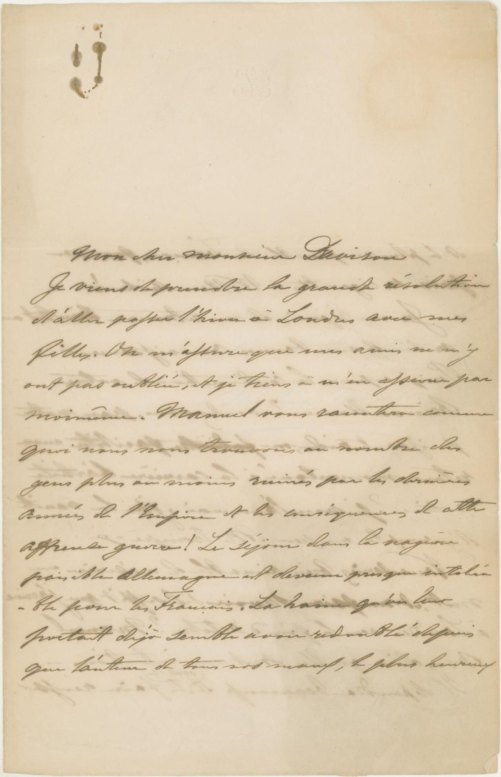 Mon cher monsieur Davison
Je viens de prendre la grande résolution
d'aller passer l'hiver à Londres avec mes
filles. On m'assure que mes amis ne m'y
ont pas oubliée, et je tiens à m'en assurer par
moimême. Manuel vous racontera comme
quoi nous nous trouvons au nombre des
gens plus ou moins ruinés par les dernières
années de l'Empire et les conséquences de cette
affreuse guerre! Le séjour dans la naguère
paisible Allemagne est devenu presque intolé-
-ble pour les Français. La haine qu'on leur
portait déjà semble avoir redoublé depuis
que l'auteur de tous nos maux, le plus heureux